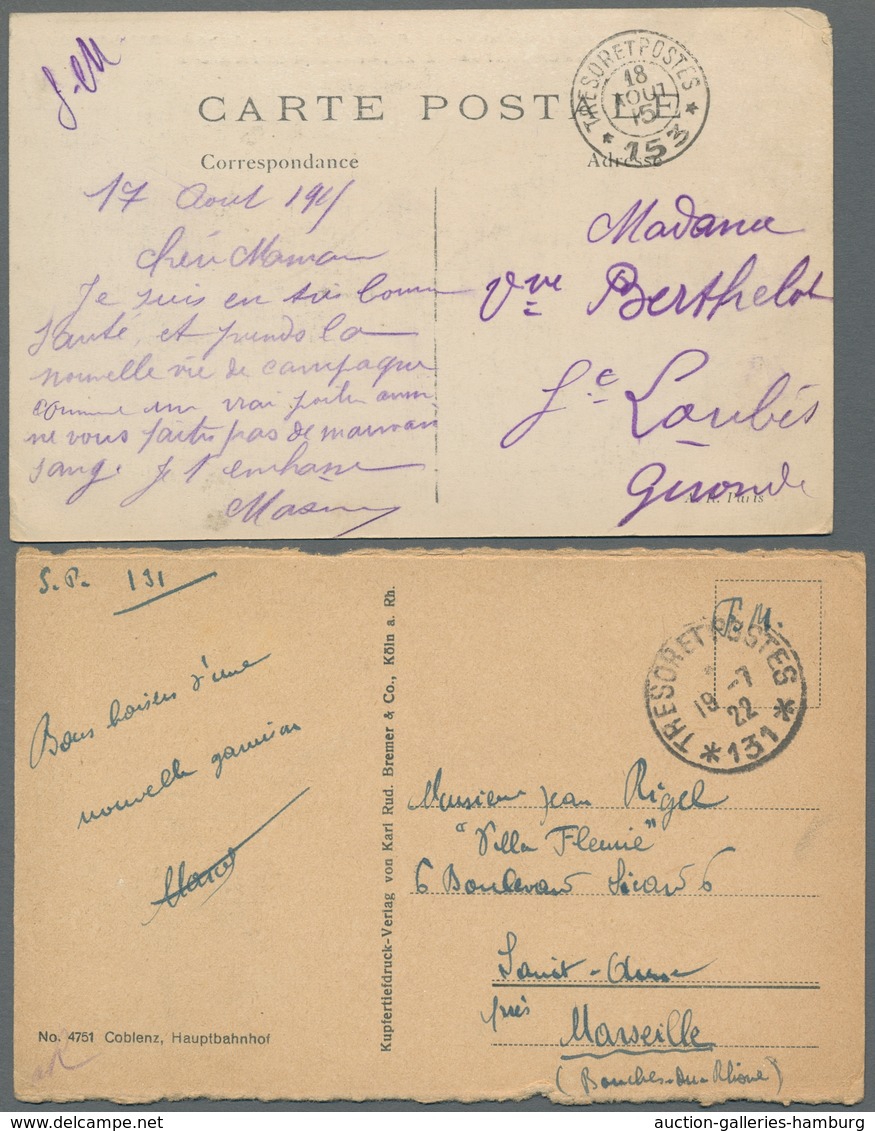 F.M.
CARTE POSTALE
TRESOR ET POSTES
18
AOUT
15
* 153 *
Correspondance
Adresse
17 Aout 1915
Chère Maman
Je suis en très bonne
santé, et prends la
nouvelle vie de campagne
comme un vrai poilu aussi
ne vous faites pas de mauvais
sang. Je t'embrasse
Madame
Vve Berthelot
St Loubès
Gironde
A. R. Paris
S.P. 131
F.M.
TRESOR ET POSTES
19 -7
22
* 131 *
Bons baisers d'une
nouvelle garnison
Marcel
Kupfertiefdruck-Verlag von Karl Rud. Bremer & Co., Köln a. Rh.
Monsieur Jean Rigel
"Villa Fleurie"
6 Boulevard Sicard 6
Saint-Anne
près
Marseille
(Bouches-du-Rhône)
No. 4751 Coblenz, Hauptbahnhof
auction-galleries-hamburg